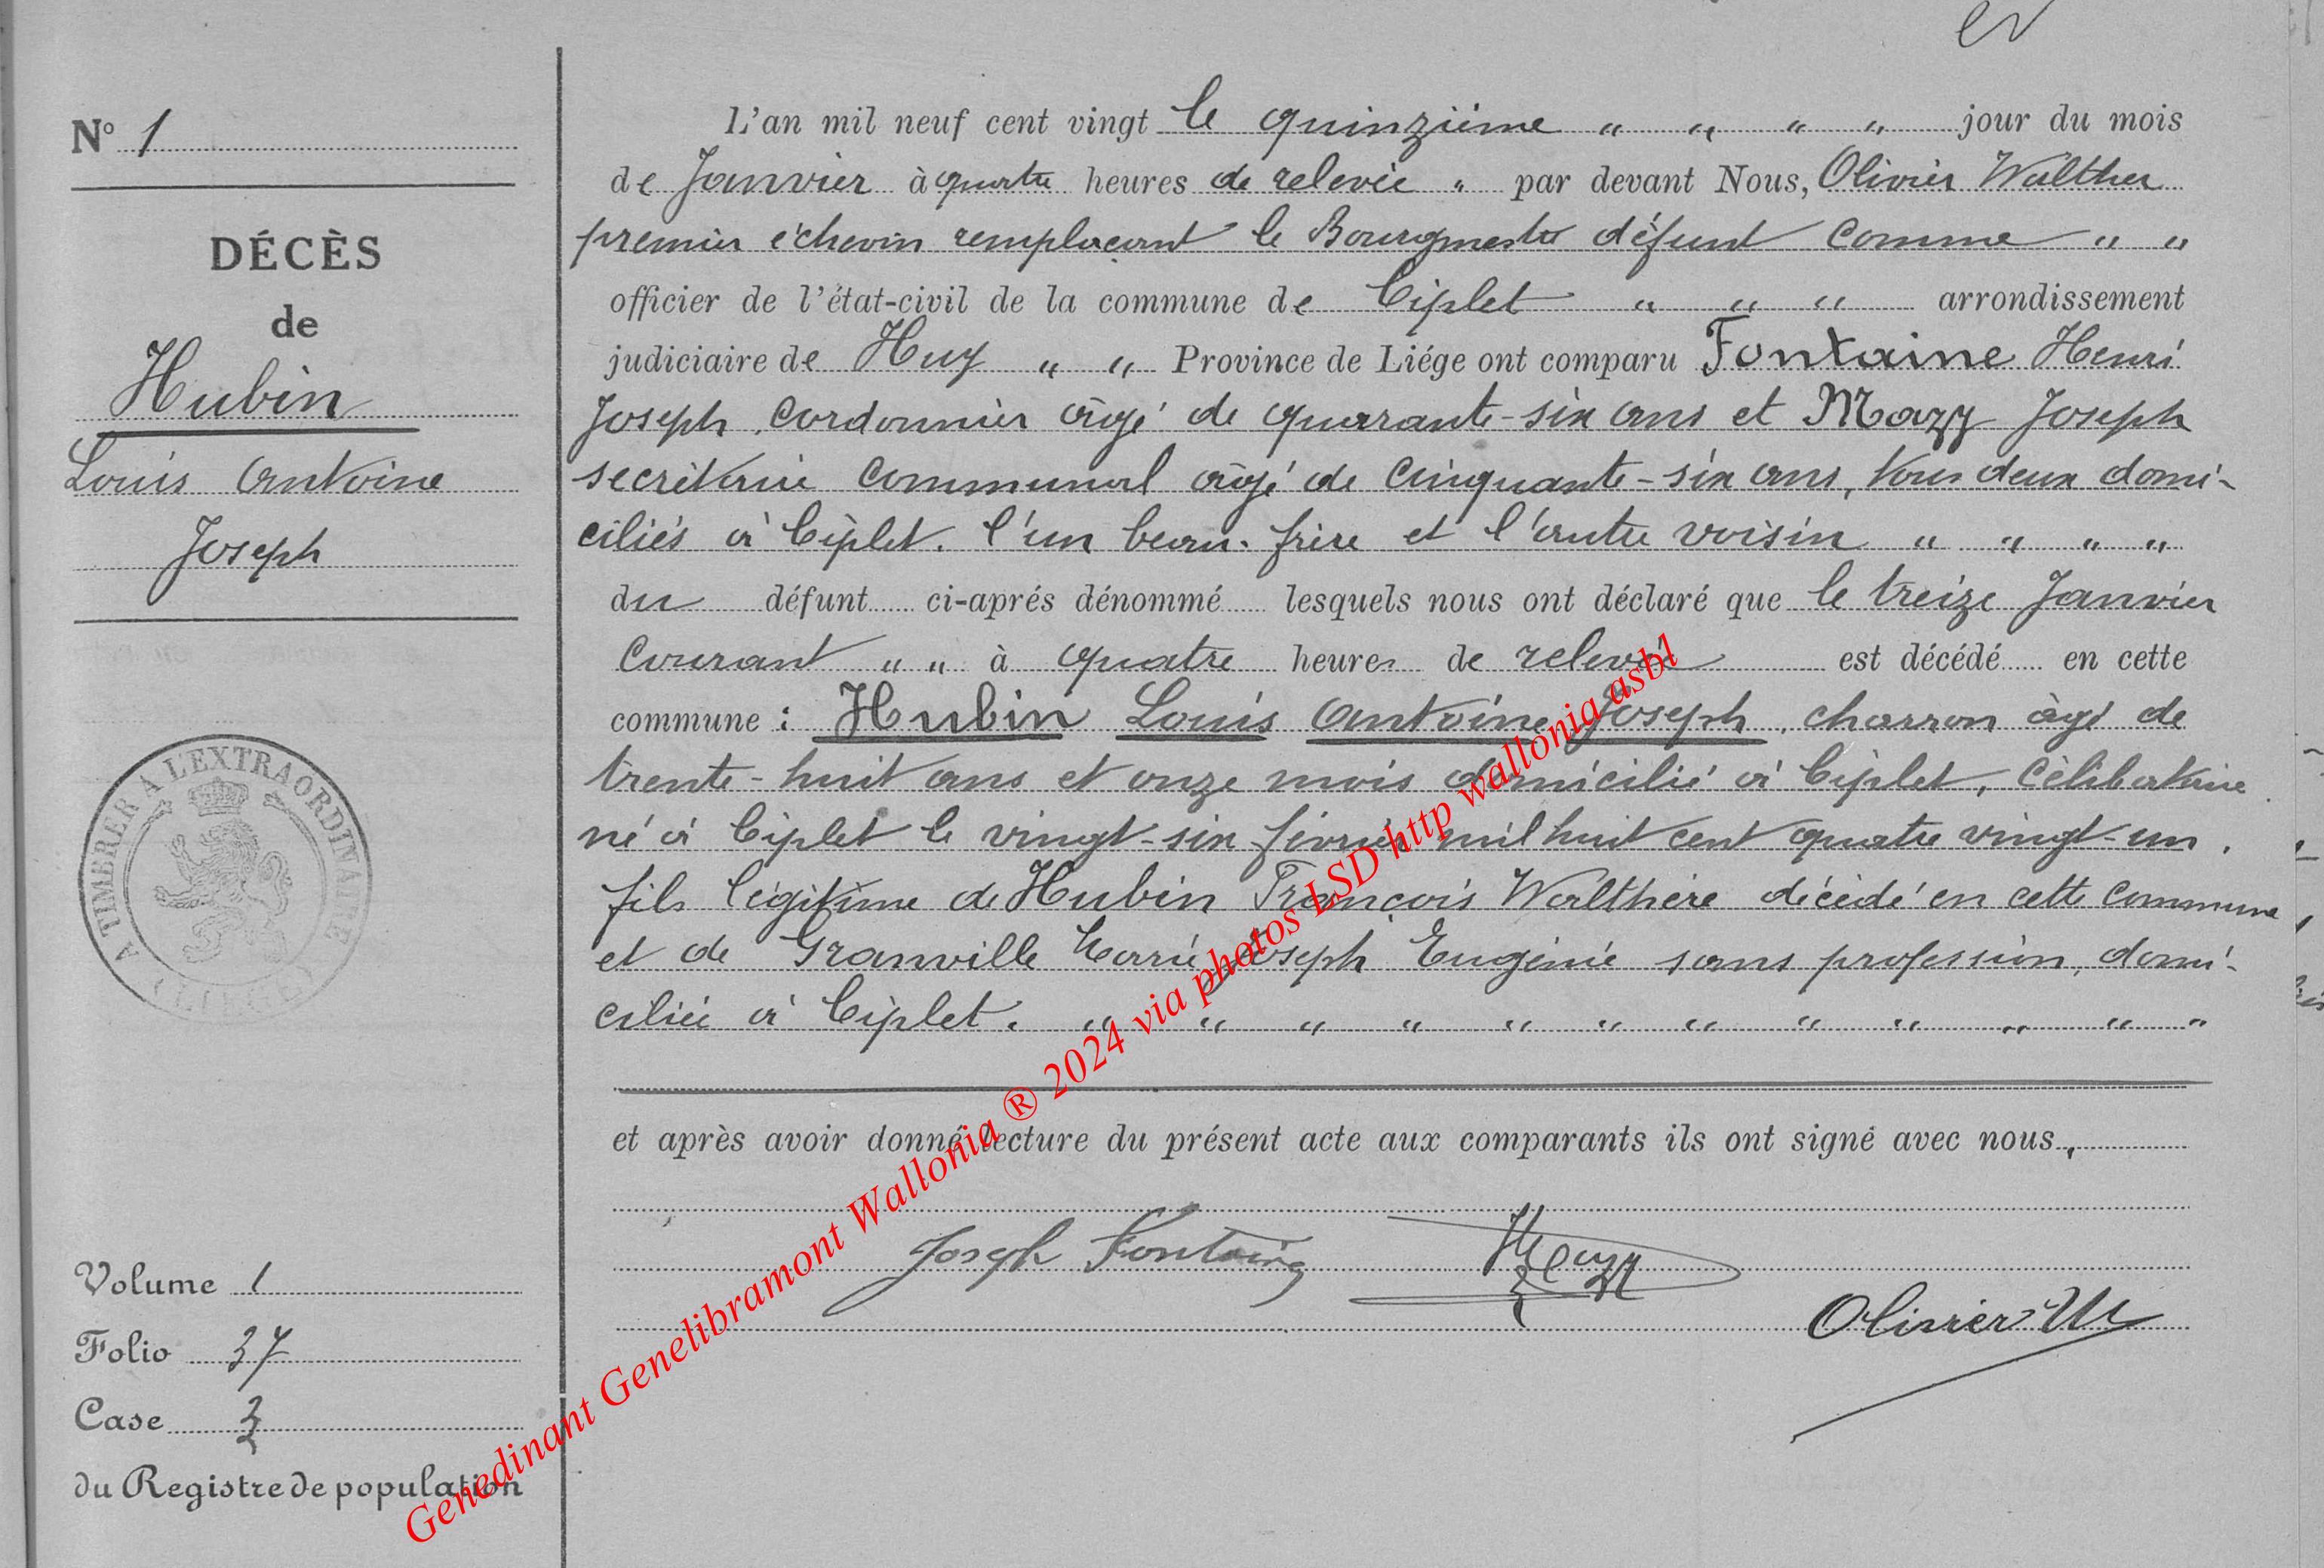 N° 1
DÉCÈS
de
Hubin
Louis Antoine
Joseph
A TIMBRER A L'EXTRAORDINAIRE
LIEGE
Volume 1
Folio 37
Case 3
du Registre de population
L'an mil neuf cent vingt le quinzième " " " " jour du mois
de Janvier à quatre heures de relevée " par devant Nous, Olivier Walther
premier échevin remplaçant le Bourgmestre défunt comme " "
officier de l'état-civil de la commune de Ciplet " " " arrondissement
judiciaire de Huy " " Province de Liége ont comparu Fontaine Henri
Joseph, cordonnier âgé de quarante-six ans et Mazy Joseph
secrétaire communal âgé de cinquante-six ans, tous deux domi-
ciliés à Ciplet. l'un beau-frère et l'autre voisin " " " "
du défunt ci-aprés dénommé lesquels nous ont déclaré que le treize Janvier
Courant " " à quatre heures de relevée est décédé en cette
commune : Hubin Louis Antoine Joseph, charron âgé de
trente-huit ans et onze mois domicilié à Ciplet, célibataire
né à Ciplet le vingt-six février mil huit cent quatre vingt-un,
fils légitime de Hubin François Walthère décédé en cette commune
et de Granville Marie Joseph Eugénie sans profession, domi-
ciliée à Ciplet. " " " " " " " " " " " "
et après avoir donné lecture du présent acte aux comparants ils ont signé avec nous,
Joseph Fontaine
Mazy
Olivier W
Genedinant Genelibramont Wallonia ® 2024 via photos LSD http wallonia asbl